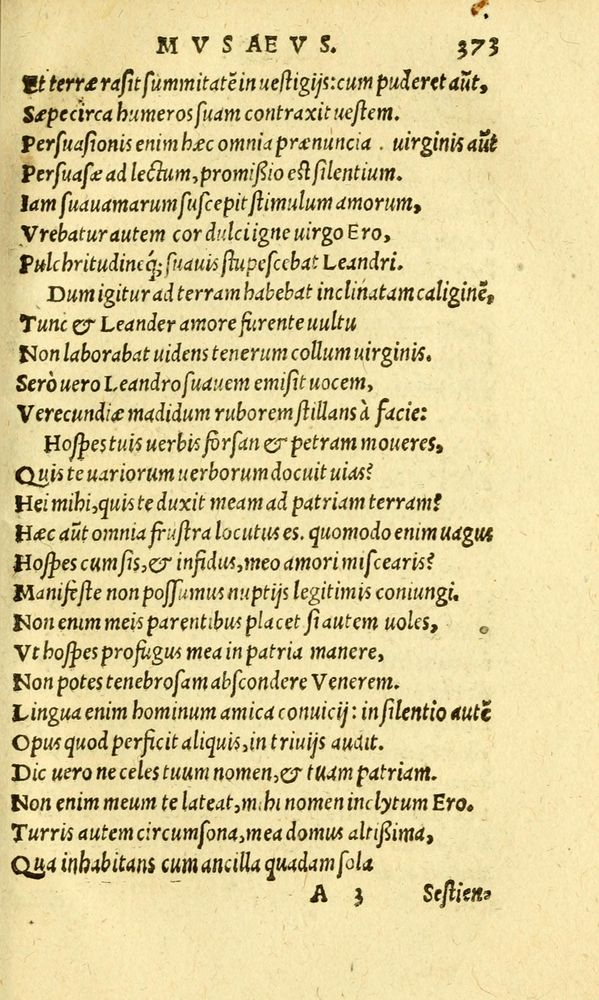 MVSAEVS. 373
Et terræ rasit summitatē in uestigijs: cum puderet aūt,
Sæpe circa humeros suam contraxit uestem.
Persuasionis enim hæc omnia prænuncia . uirginis aūt
Persuasæ ad lectum, promißio est silentium.
Iam suauamarum suscepit stimulum amorum,
Vrebatur autem cor dulci igne uirgo Ero,
Pulchritudineq́; suauis stupescebat Leandri.
Dum igitur ad terram habebat inclinatam caliginē,
Tunc & Leander amore furente uultu
Non laborabat uidens tenerum collum uirginis.
Serò uero Leandro suauem emisit uocem,
Verecundiæ madidum ruborem stillans à facie:
Hospes tuis uerbis forsan & petram moueres,
Quis te uariorum uerborum docuit uias?
Hei mihi, quis te duxit meam ad patriam terram?
Hæc aūt omnia frustra locutus es. quomodo enim uagus
Hospes cum sis, & infidus, meo amori miscearis?
Manifeste non possumus nuptijs legitimis coniungi.
Non enim meis parentibus placet si autem uoles,
Vt hospes profugus mea in patria manere,
Non potes tenebrosam abscondere Venerem.
Lingua enim hominum amica conuicij: in silentio autē
Opus quod perficit aliquis, in triuijs audit.
Dic uero ne celes tuum nomen, & tuam patriam.
Non enim meum te lateat, mihi nomen inclytum Ero.
Turris autem circumsona, mea domus altißima,
Qua inhabitans cum ancilla quadam sola
A 3 Sestien-